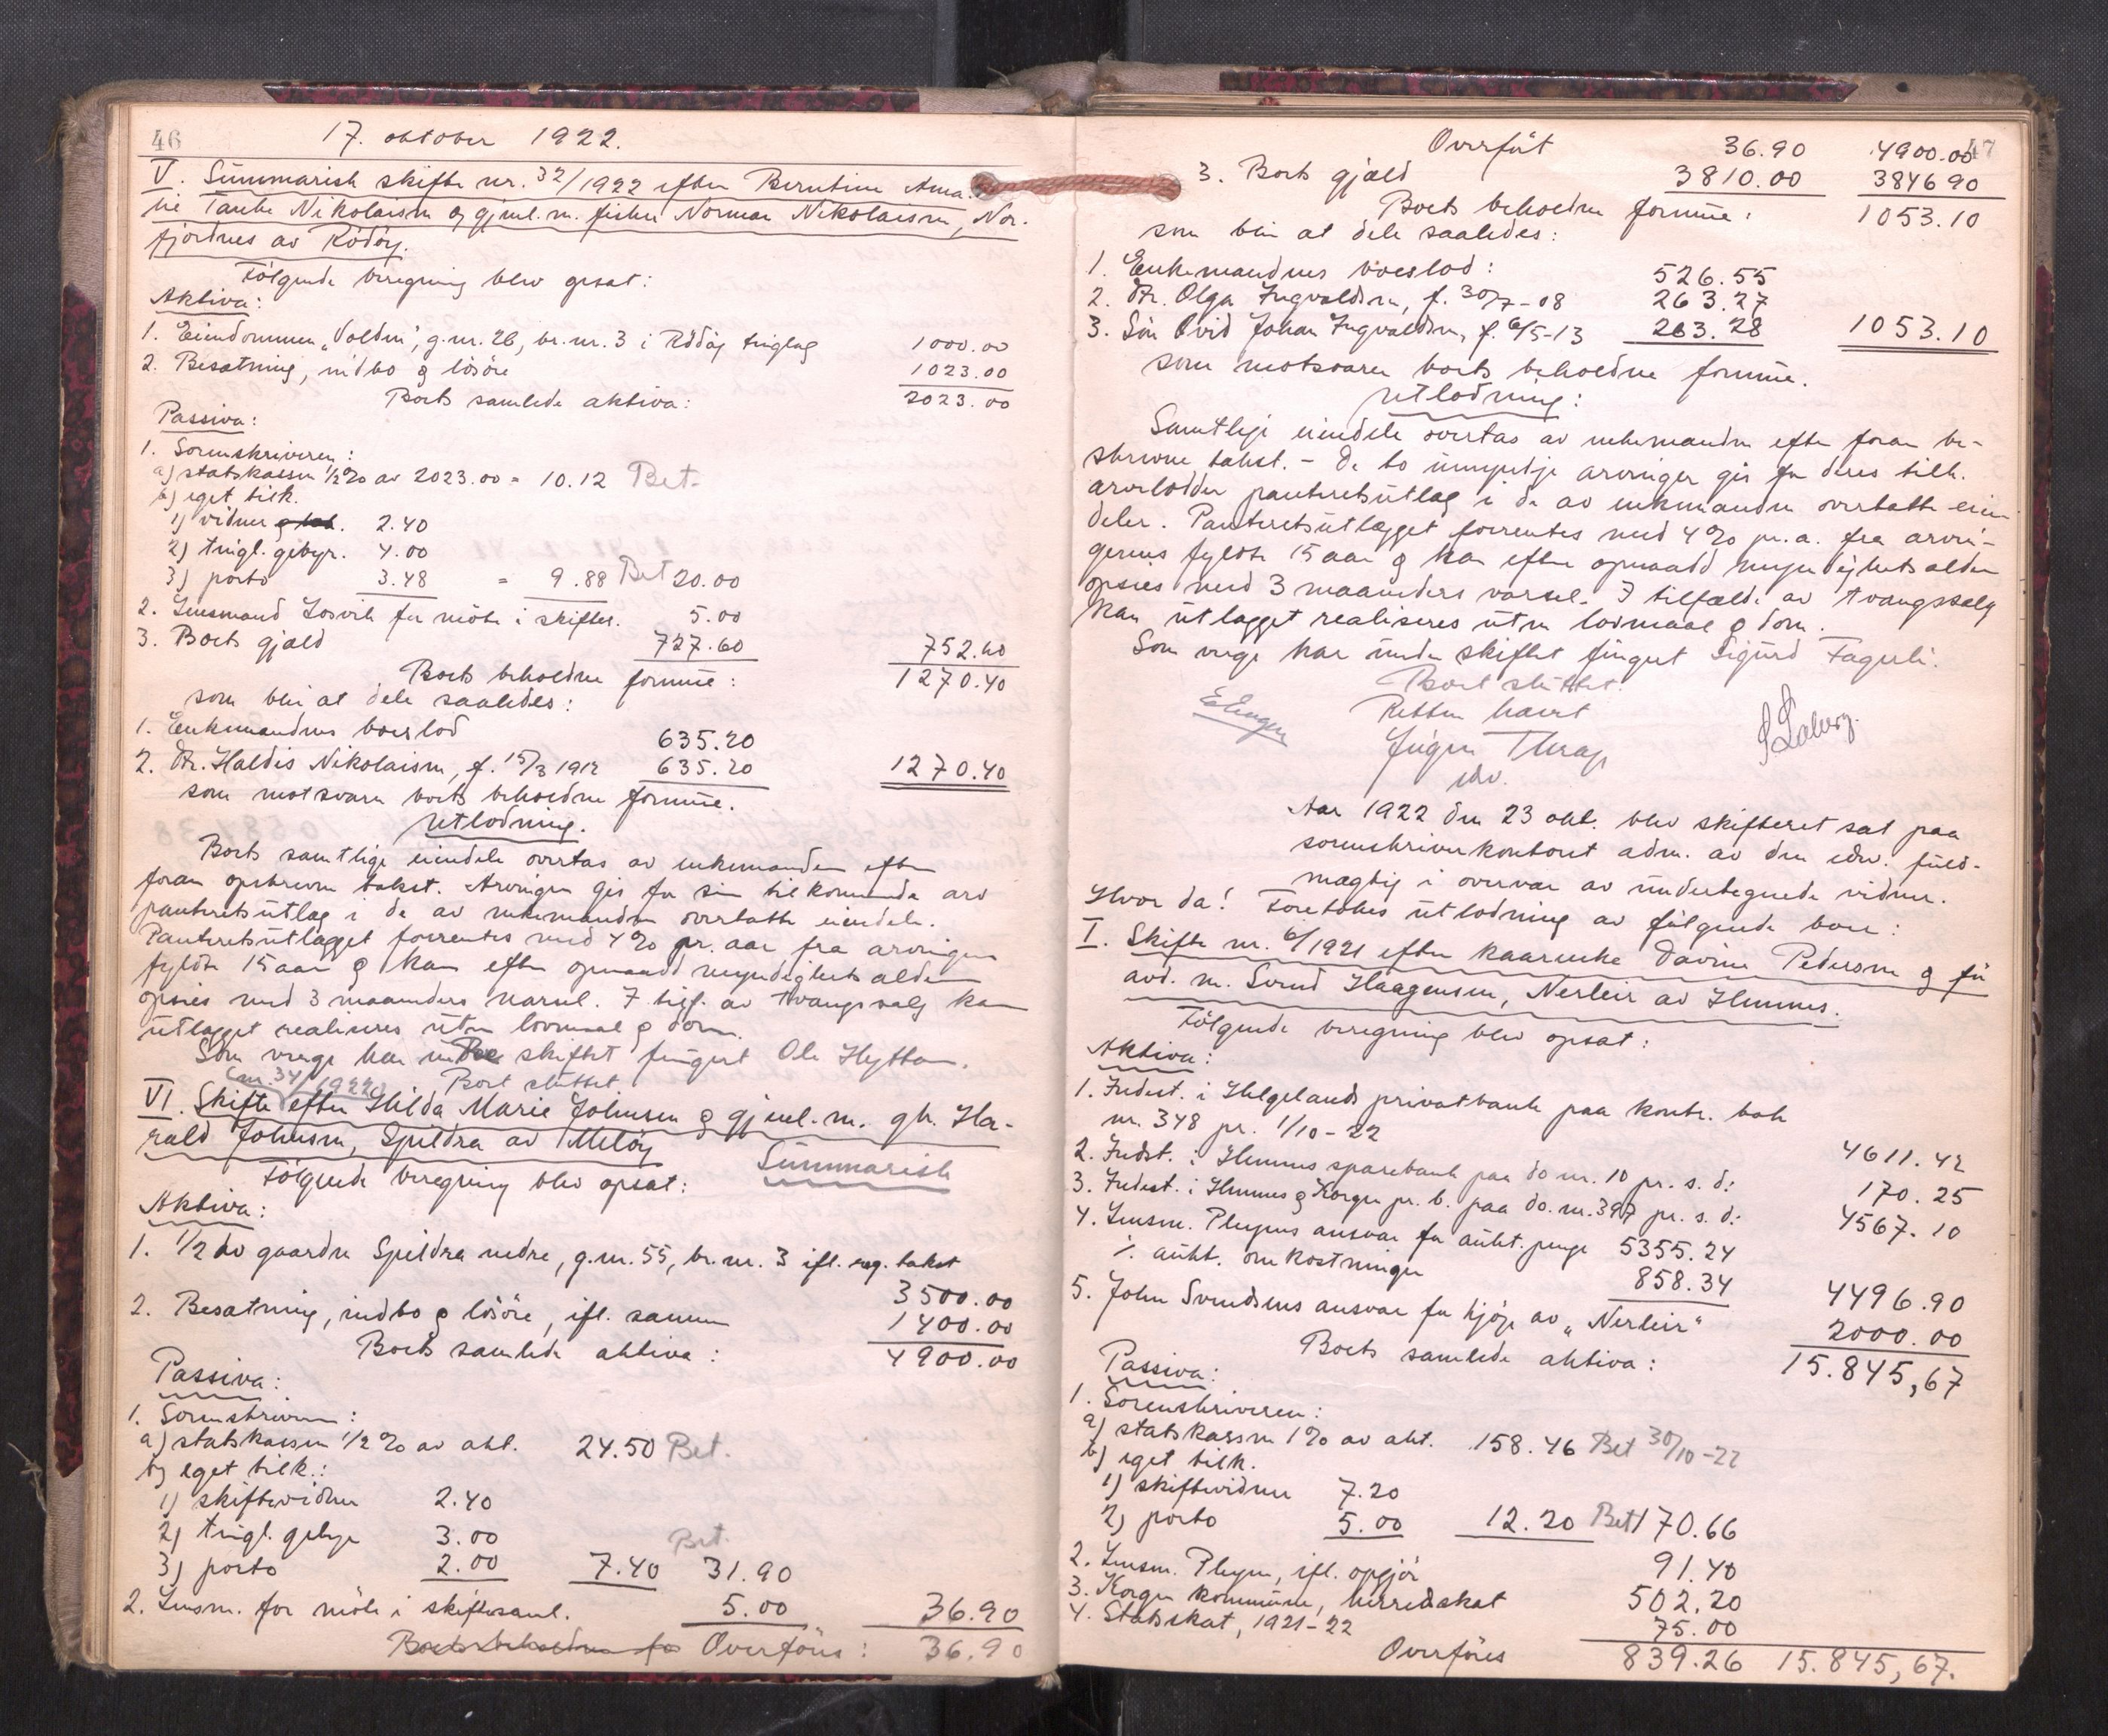 46
17. oktober 1922.
V. Summarisk skifte nr. 32/1922 efter Berntine Ama-
lie Tanke Nikolaisen og gjenl. m. fisker Norman Nikolaisen, Nor-
fjordnes av Rödöy.
Følgende beregning blev opsat:
Aktiva:
1. Eiendommen „Volden", g.nr. 26, br.nr. 3 i Rödöy tinglag 1000.00
2. Besætning, indbo og lösöre 1023.00
Boets samlede aktiva: 2023.00
Passiva:
1. Sorenskriveren:
a) statskassen 1/2% av 2023.00 = 10.12 Bet.
b) eget tilk.
1) vidner 2.40
2) tingl. gebyr. 4.00
3) porto 3.48 = 9.88 Bet 20.00
2. Lensmand Losvik for möte i skiftes. 5.00
3. Boets gjæld 727.60 752.60
Boets beholdne formue: 1270.40
som blir at dele saaledes:
1. Enkemandens boeslod 635.20
2. Dtr. Haldis Nikolaisen, f. 15/3 1912 635.20 1270.40
som motsvarer boets beholdne formue.
Utlodning.
Boets samtlige eiendele overtas av enkemanden efter
foran opskrevne takst. Arvingen gis for sin tilkommende arv
panteretsutlæg i de av enkemanden overtatte eiendele.
Panteretsutlægget forrentes med 4% pr. aar fra arvingens
fyldte 15 aar og kan efter opnaadd myndighetsalder
opsies med 3 maaneders varsel. I tilf. av tvangssalg kan
utlægget realiseres uten lovmaal og dom.
Som verge har under skiftet fungert Ole Hyttan.
Boet sluttet.
(nr. 34/1922)
VI. Skifte efter Hilda Marie Johnsen og gjenl. m. gb. Ha-
rald Johnsen, Spildra av Melöy
Summarisk
Følgende beregning blev opsat:
Aktiva:
1. 1/2 av gaarden Spildra nedre, g.nr. 55, br.nr. 3 ifl. reg. takst 3500.00
2. Besætning, indbo og lösöre, ifl. samme 1400.00
Boets samlede aktiva: 4900.00
Passiva:
1. Sorenskriveren:
a) statskassen 1/2% av akt. 24.50 Bet.
b) eget tilk.:
1) skiftevidner 2.40
2) tingl. gebyr 3.00
3) porto 2.00 7.40 Bet. 31.90
2. Lensm. for möte i skiftesaml. 5.00 36.90
Boets beholdne fo Overföres: 36.90
47
Overfört 36.90 4900.00
3. Boets gjæld 3810.00 3846 90
Boets beholdne formue: 1053.10
som blir at dele saaledes:
1. Enkemandens boeslod: 526.55
2. Dtr. Olga Ingvaldsen, f. 30/7-08 263.27
3. Sön Ovid Johan Ingvaldsen, f. 6/5-13 263.28 1053.10
som motsvarer boets beholdne formue.
Utlodning:
Samtlige eiendele overtas av enkemanden efter foran be-
skrevne takst. - De to umyndige arvinger gis for deres tilk.
arvelodder panteretsutlæg i de av enkemanden overtatte eien-
deler. Panteretsutlægget forrentes med 4% pr. a. fra arvin-
gernes fyldte 15 aar og kan efter opnaadd myndighetsalder
opsies med 3 maaneders varsel. I tilfælde av tvangssalg
kan utlægget realiseres uten lovmaal og dom.
Som verge har under skiftet fungert Sigurd Fagerli.
Boet sluttet.
Retten hævet
Jörgen Thrap
edv.
Aar 1922 den 23 okt. blev skifteret sat paa
sorenskriverkontoret adm. av den edv. fuld-
mægtig i overvær av undertegnede vidner.
Hvor da! Foretokes utlodning av følgende boer:
I. Skifte nr. 6/1921 efter kaarenke Davine Pedersen og för
avd. m. Svend Haagensen, Nerleir av Hemnes.
Følgende beregning blev opsat:
Aktiva:
1. Indest. i Helgelands privatbank paa kontr. bok
nr. 348 pr. 1/10-22 4611.42
2. Indst. i Hemnes sparebank paa do nr. 10 pr. s. d: 170.25
3. Indest. i Hemnes og Korgen pr. b. paa do. nr. 397 pr. s. d: 4567.10
4. Lensm. Pleyms ansvar for aukt. penge 5355.24
÷ aukt. omkostninger 858.34 4496.90
5. John Svendsens ansvar for kjöp av „Nerleir" 2000.00
Boets samlede aktiva: 15.845,67
Passiva:
1. Sorenskriveren:
a) statskassen 1% av akt. 158.46 Bet 30/10-22
b) eget tilk.
1) skiftevidner 7.20
2) porto 5.00 12.20 Bet 170.66
2. Lensm. Pleym, ifl. opgjör 91.40
3. Korgen kommune, herredsskat 502.20
4. Statsskat, 1921-22 75.00
Overföres 839.26 15.845,67.